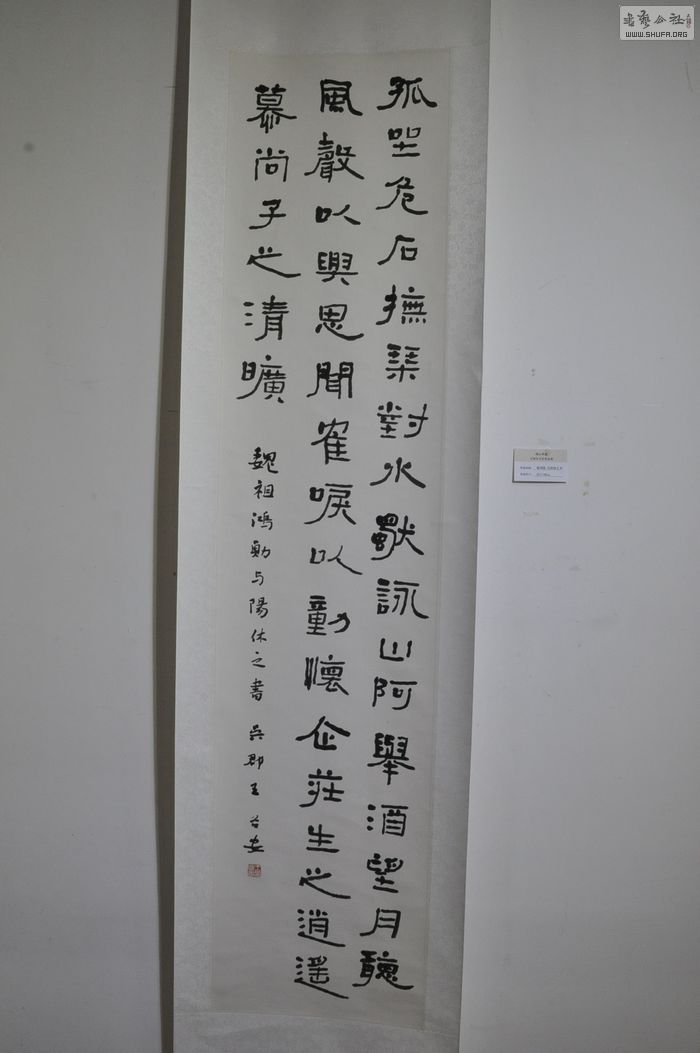 孤坐危石撫琴對水獨詠山阿舉酒望月聽
風聲以興思聞寉唳以動懷企莊生之逍遙
慕尚子之清曠
魏祖鴻勳与陽休之書 吳郡王
書藝公社
WWW.SHUFA.ORG